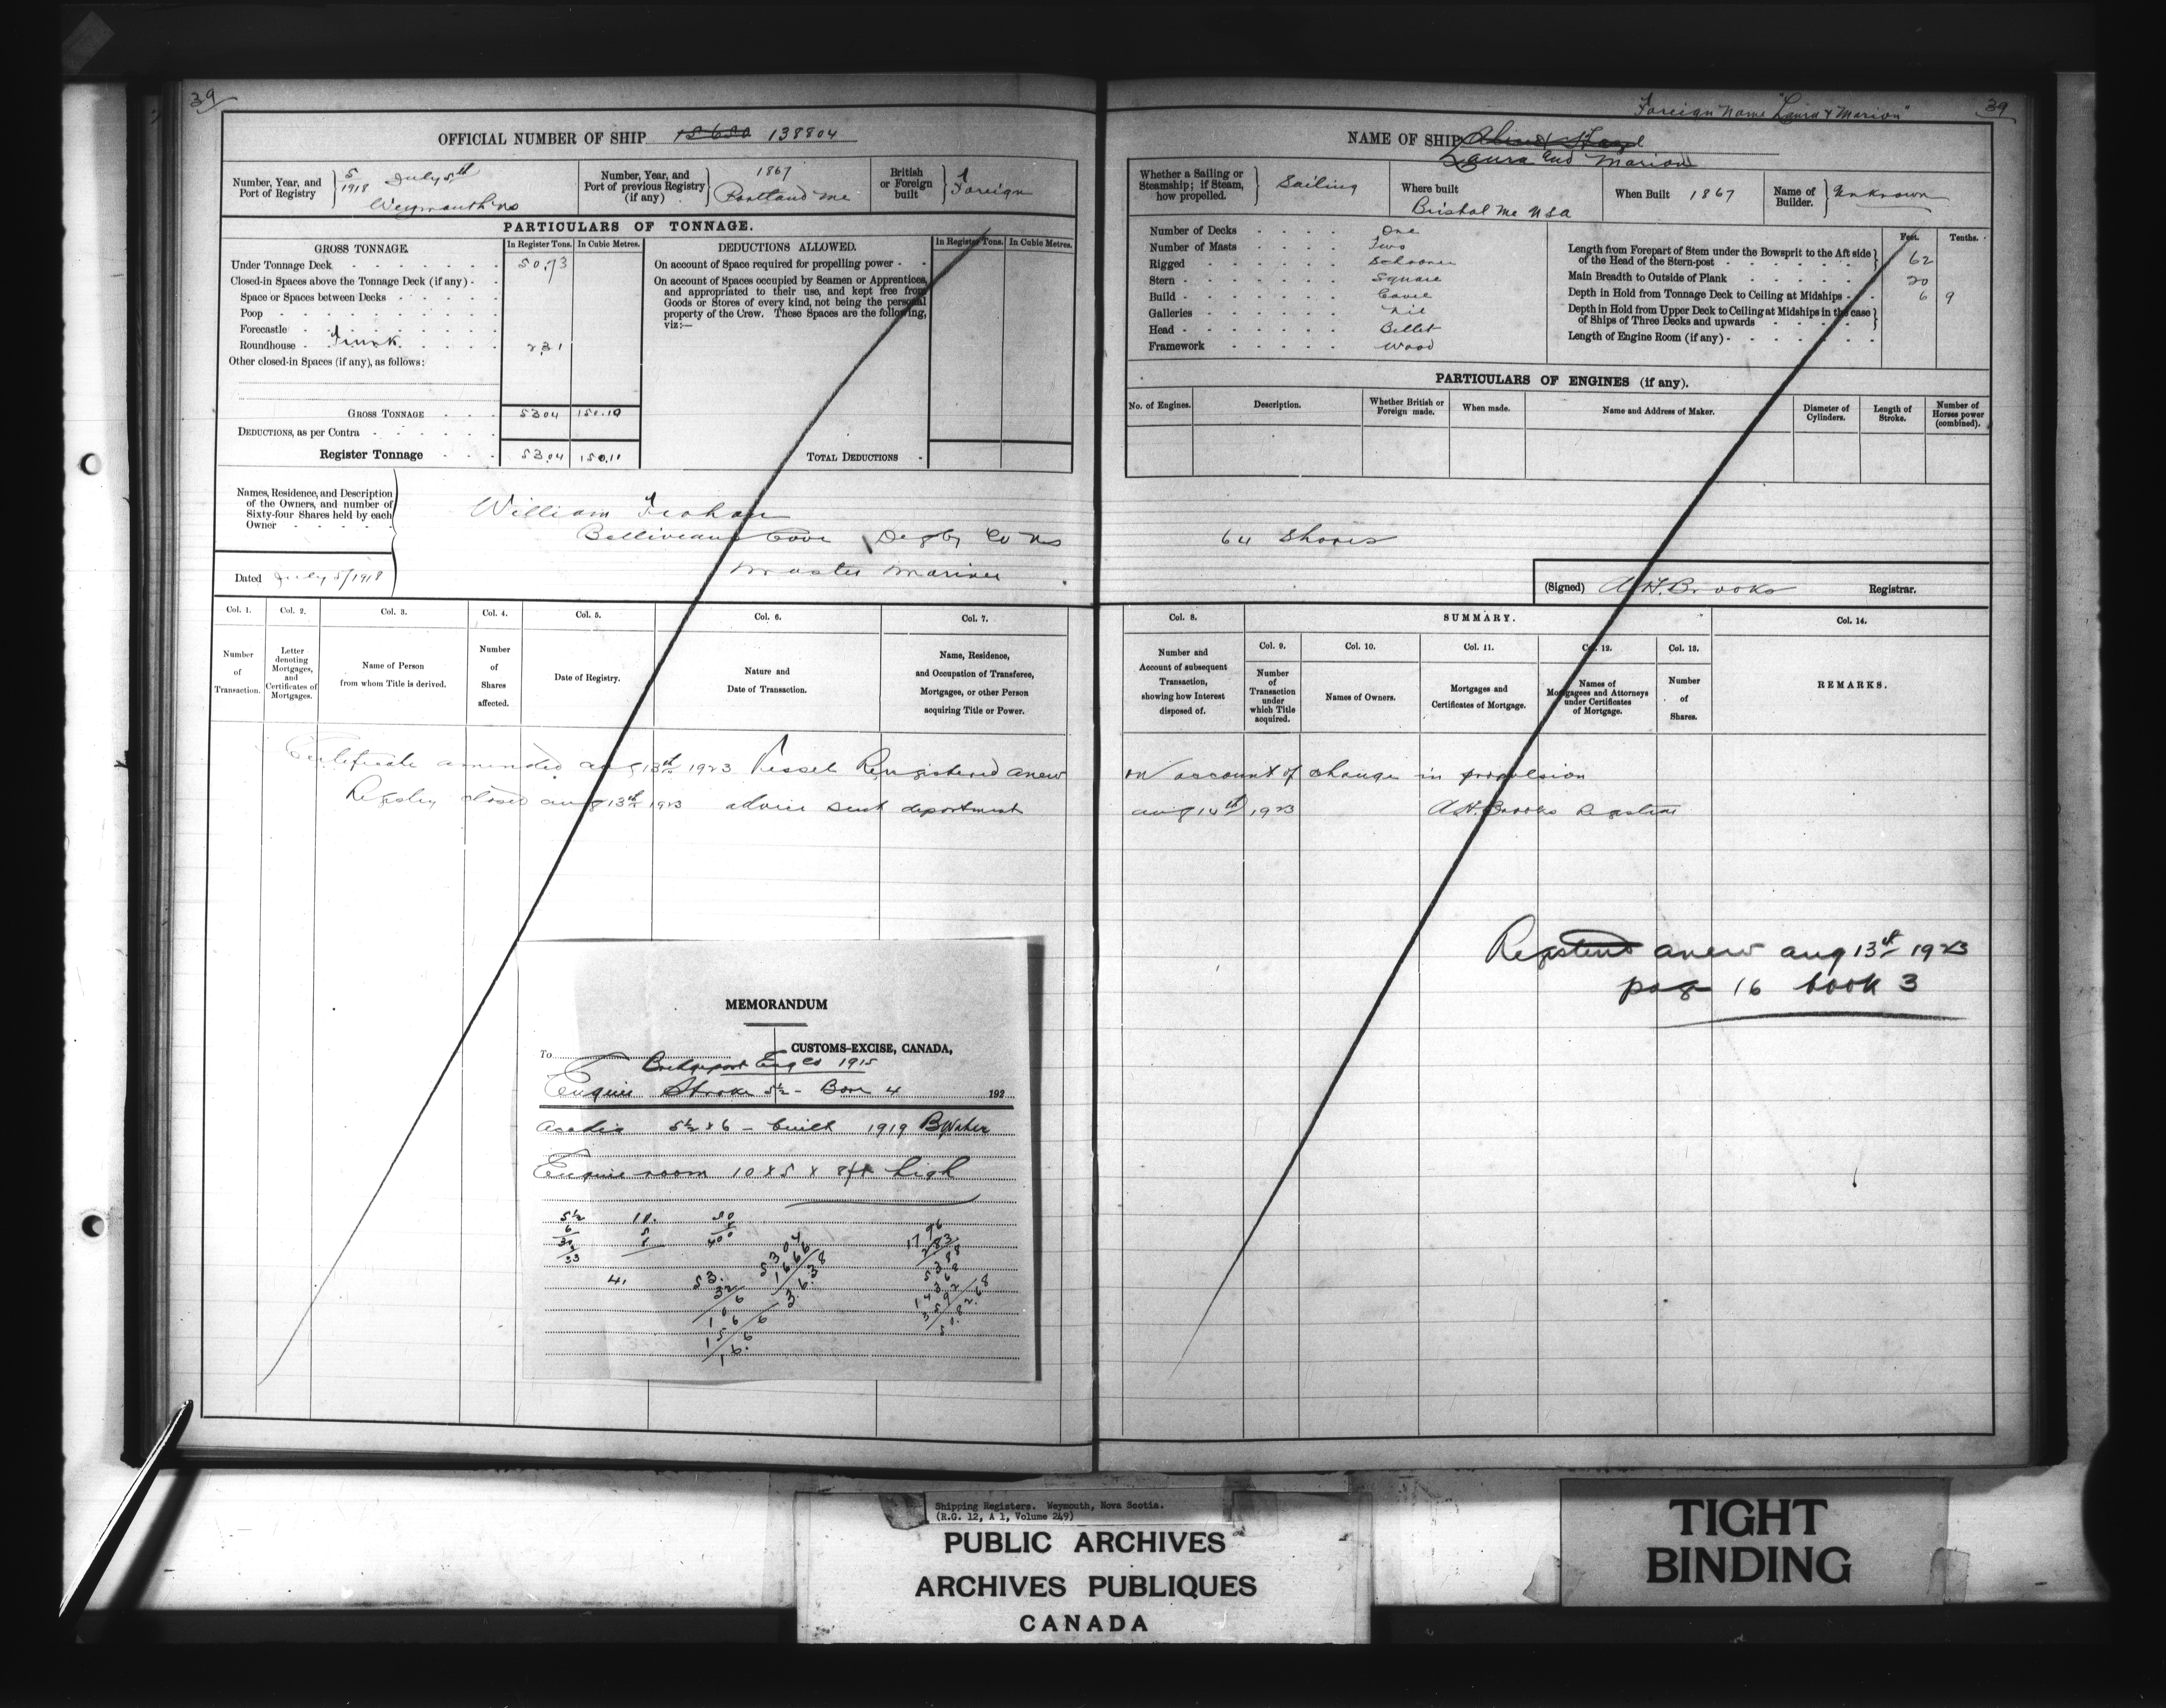 39
OFFICIAL NUMBER OF SHIP 138804
Number, Year, and Port of Registry
5/1918 July 5th
Weymouth NS
Number, Year, and Port of previous Registry (if any)
1867
Portland Me
British or Foreign built
Foreign
PARTICULARS OF TONNAGE.
GROSS TONNAGE.
In Register Tons.
In Cubic Metres.
Under Tonnage Deck 50.73
Closed-in Spaces above the Tonnage Deck (if any)
Space or Spaces between Decks
Poop
Forecastle
Roundhouse Trunk 2.31
Other closed-in Spaces (if any), as follows:
GROSS TONNAGE 53.04 150.10
DEDUCTIONS, as per Contra
Register Tonnage 53.04 150.10
DEDUCTIONS ALLOWED.
In Register Tons.
In Cubic Metres.
On account of Space required for propelling power
On account of Spaces occupied by Seamen or Apprentices,
and appropriated to their use, and kept free from
Goods or Stores of every kind, not being the personal
property of the Crew. These Spaces are the following,
viz:—
TOTAL DEDUCTIONS
Names, Residence, and Description
of the Owners, and number of
Sixty-four Shares held by each
Owner
William
Belliveaus Cove Digby Co NS
Master Mariner
Dated July 5/1918
Col. 1.
Number
of
Transaction.
Col. 2.
Letter
denoting
Mortgages,
and
Certificates of
Mortgages.
Col. 3.
Name of Person
from whom Title is derived.
Col. 4.
Number
of
Shares
affected.
Col. 5.
Date of Registry.
Col. 6.
Nature and
Date of Transaction.
Col. 7.
Name, Residence,
and Occupation of Transferee,
Mortgagee, or other Person
acquiring Title or Power.
Certificate amended aug 13th 1923 Vessel Registered anew
Registry closed aug 13th 1923 advice sent department
MEMORANDUM
To
CUSTOMS-EXCISE, CANADA,
Bridgeport Eng Co 1915
Engine Stroke 5½ - Bore 4
192
Acadia 5½ x 6 - built 1919 BWater
Engine room 10 x 5 x 8ft high
Foreign Name "Laura & Marion"
39
NAME OF SHIP
Laura and Marion
Whether a Sailing or
Steamship; if Steam,
how propelled.
Sailing
Where built
Bristol Me USA
When Built 1867
Name of Builder.
Unknown
Number of Decks One
Number of Masts Two
Rigged Schooner
Stern Square
Build Carvel
Galleries Nil
Head Billet
Framework Wood
Feet.
Tenths.
Length from Forepart of Stem under the Bowsprit to the Aft side
of the Head of the Stern-post 62
Main Breadth to Outside of Plank 20
Depth in Hold from Tonnage Deck to Ceiling at Midships 6 9
Depth in Hold from Upper Deck to Ceiling at Midships in the case
of Ships of Three Decks and upwards
Length of Engine Room (if any)
PARTICULARS OF ENGINES (if any).
No. of Engines.
Description.
Whether British or
Foreign made.
When made.
Name and Address of Maker.
Diameter of
Cylinders.
Length of
Stroke.
Number of
Horses power
(combined).
64 Shares
(Signed) A.H. Brooks Registrar.
Col. 8.
Number and
Account of subsequent
Transaction,
showing how Interest
disposed of.
SUMMARY.
Col. 9.
Number
of
Transaction
under
which Title
acquired.
Col. 10.
Names of Owners.
Col. 11.
Mortgages and
Certificates of Mortgage.
Col. 12.
Names of
Mortgagees and Attorneys
under Certificates
of Mortgage.
Col. 13.
Number
of
Shares.
Col. 14.
REMARKS.
on account of change in propulsion
aug 14th 1923 A.H. Brooks Registrar
Registered anew aug 13th 1923
page 16 book 3
Shipping Registers. Weymouth, Nova Scotia.
(R.G. 12, A 1, Volume 249)
PUBLIC ARCHIVES
ARCHIVES PUBLIQUES
CANADA
TIGHT
BINDING